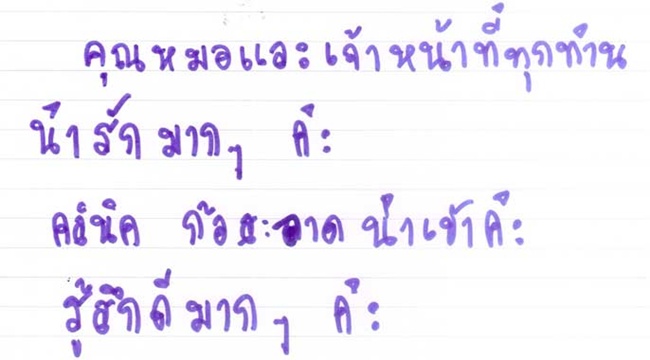 คุณหมอและเจ้าหน้าที่ทุกท่าน
น่ารักมากๆ ค่ะ
คลีนิค ก็สะอาดน่าเข้าค่ะ
รู้สึกดีมากๆ ค่ะ